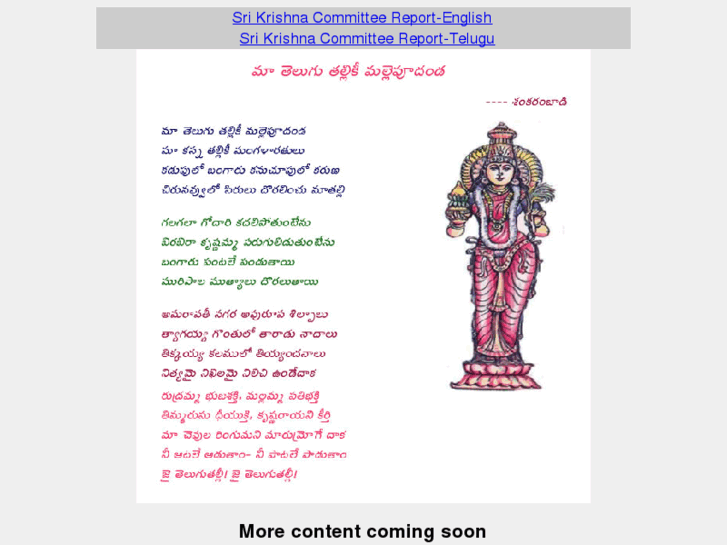 Sri Krishna Committee Report-English
Sri Krishna Committee Report-Telugu
మా తెలుగు తల్లికీ మల్లెపూదండ
---- శంకరంబాడి
మా తెలుగు తల్లికీ మల్లెపూదండ
మా కన్న తల్లికీ మంగళారతులు
కడుపులో బంగారు కనుచూపులో కరుణ
చిరునవ్వులో సిరులు దొరలించు మాతల్లి
గలగలా గోదారి కదలిపోతుంటేను
బిరబిరా కృష్ణమ్మ పరుగులిడుతుంటేను
బంగారు పంటలే పండుతాయి
మురిపాల ముత్యాలు దొరలుతాయి
అమరావతీ నగర అపురూప శిల్పాలు
త్యాగయ్య గొంతులో తారాడు నాదాలు
తిక్కయ్య కలములో తియ్యందనాలు
నిత్యమై నిఖిలమై నిలిచి ఉండేదాక
రుద్రమ్మ భుజశక్తి, మల్లమ్మ పతిభక్తి
తిమ్మరుసు ధీయుక్తి, కృష్ణరాయని కీర్తి
మా చెవుల రింగుమని మారుమ్రోగే దాక
నీ ఆటలే ఆడుతాం- నీ పాటలే పాడుతాం
జై తెలుగుతల్లీ! జై తెలుగుతల్లీ!
More content coming soon